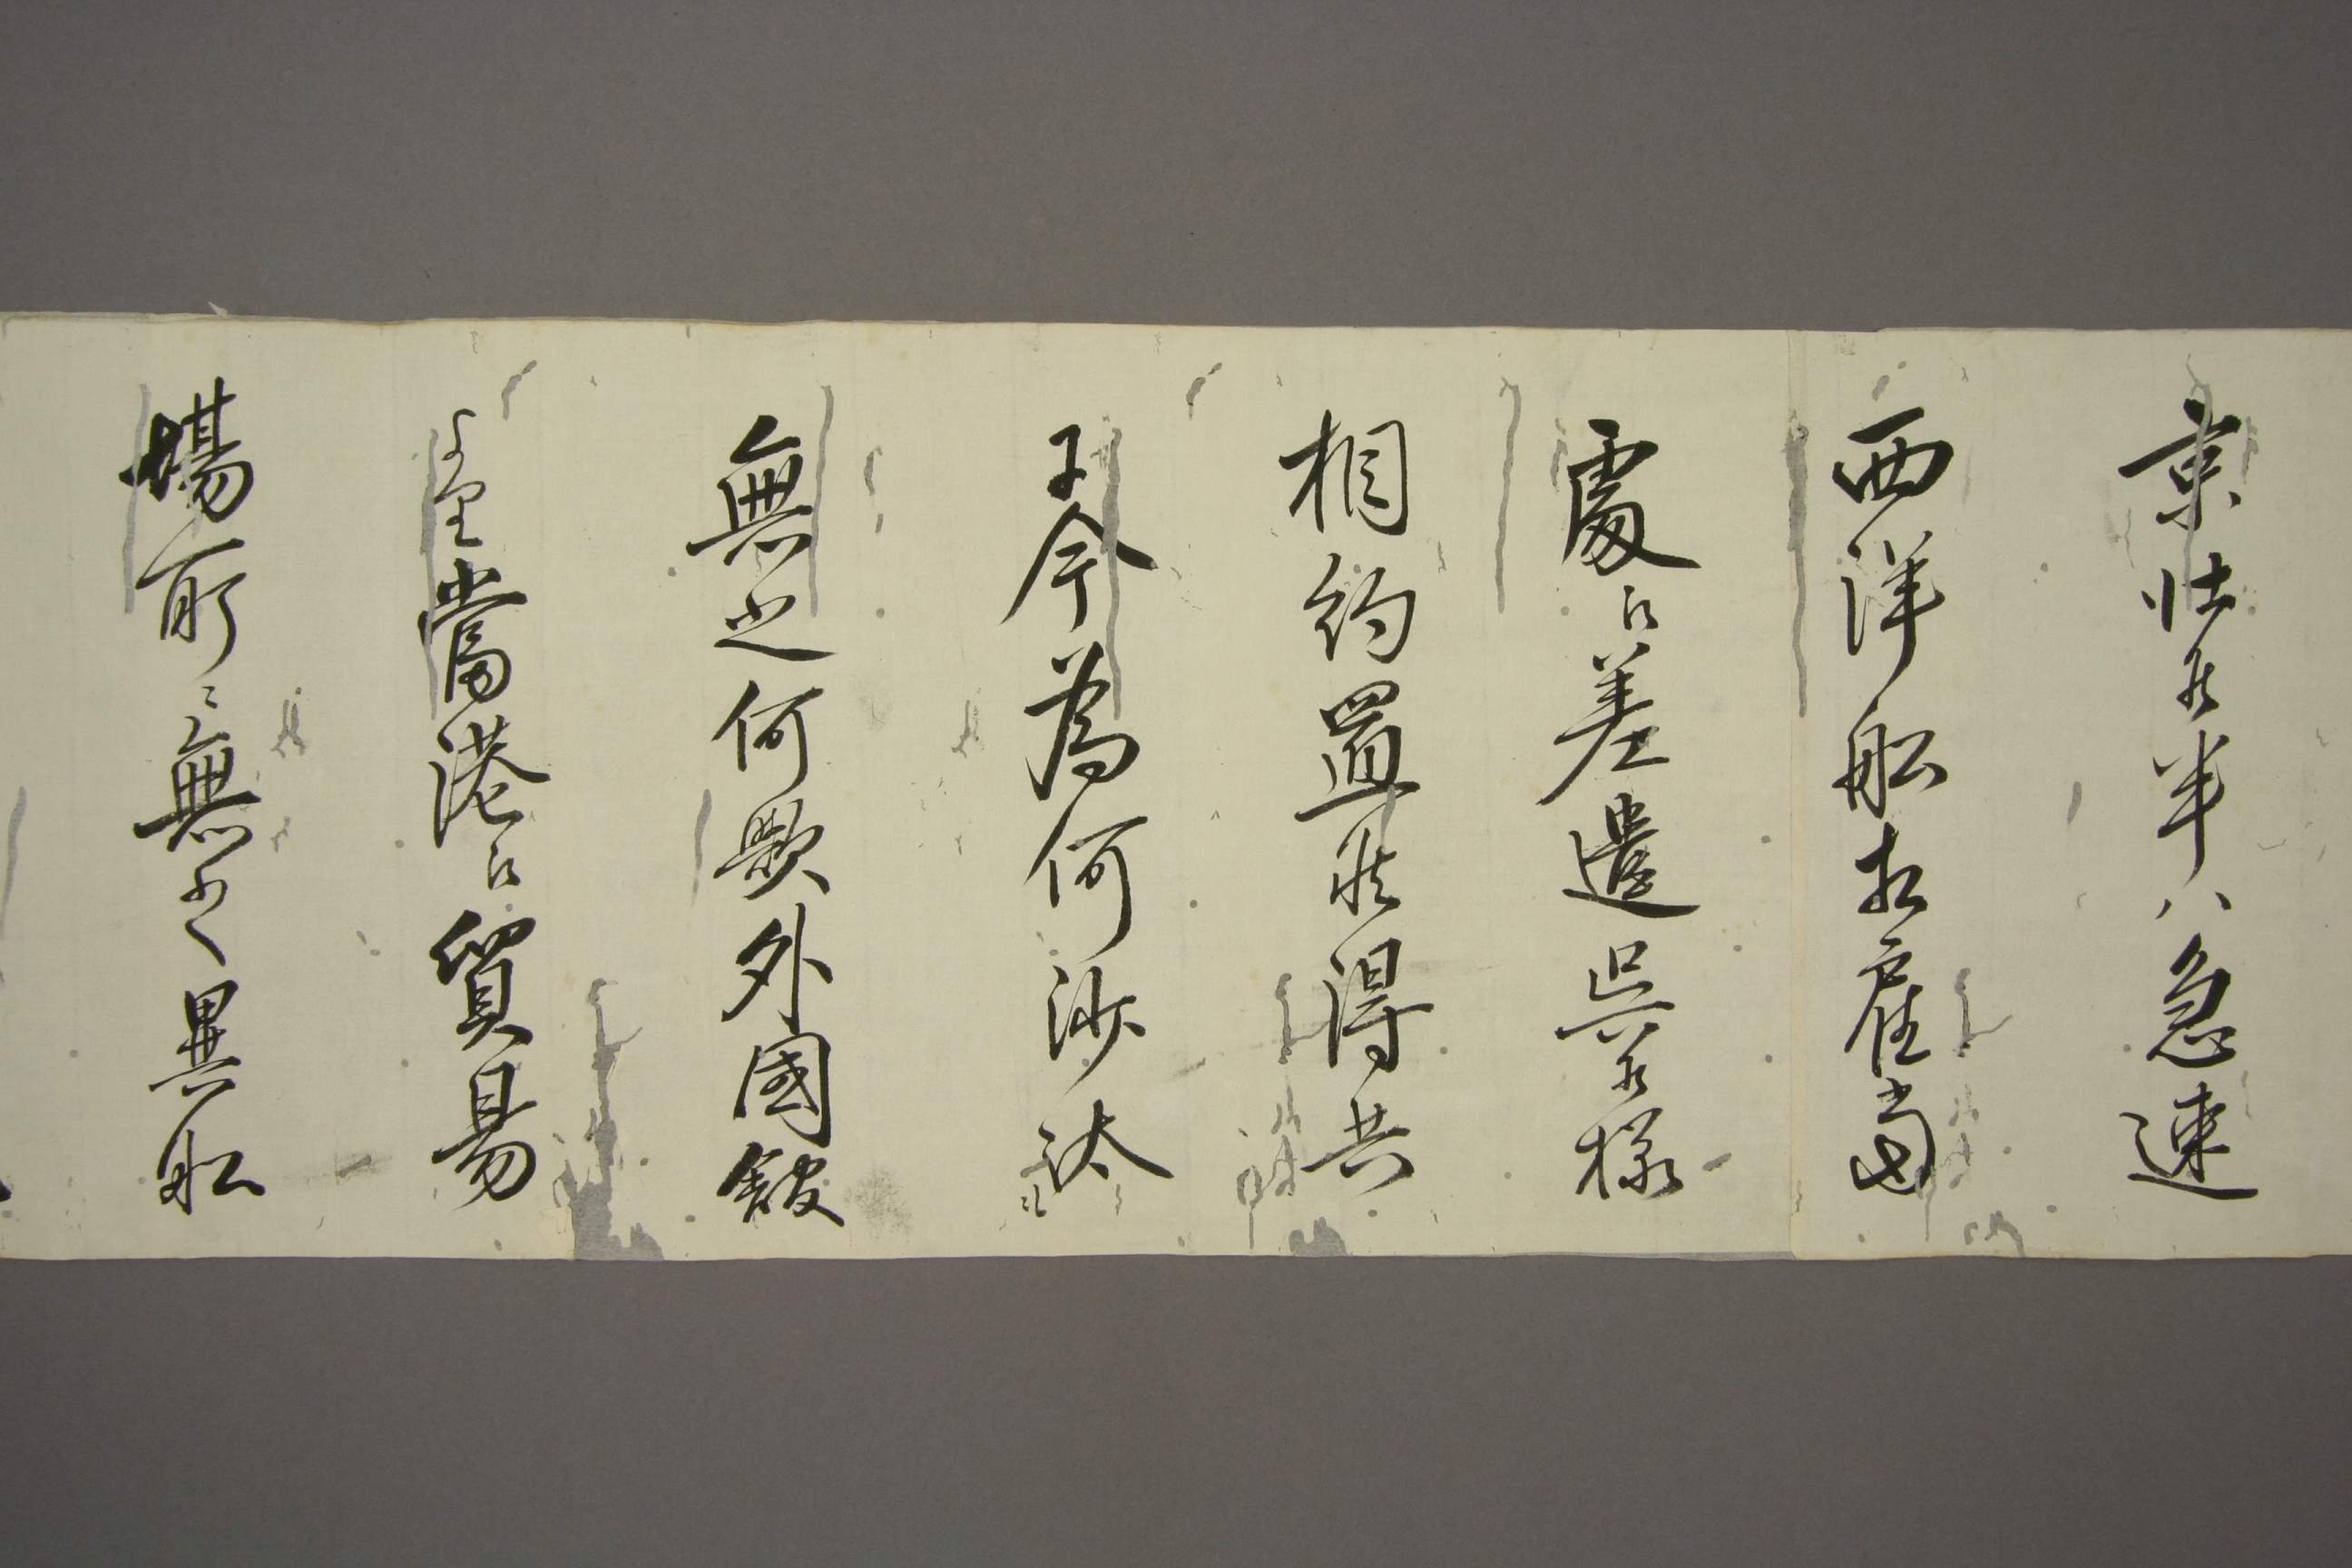 京仕候半ハ急速
西洋船相雇当
處江差遣呉候様
相約置候得共
于今為何沙汰
無之何歟外国館
より當港江貿易
場所ニ無之異船